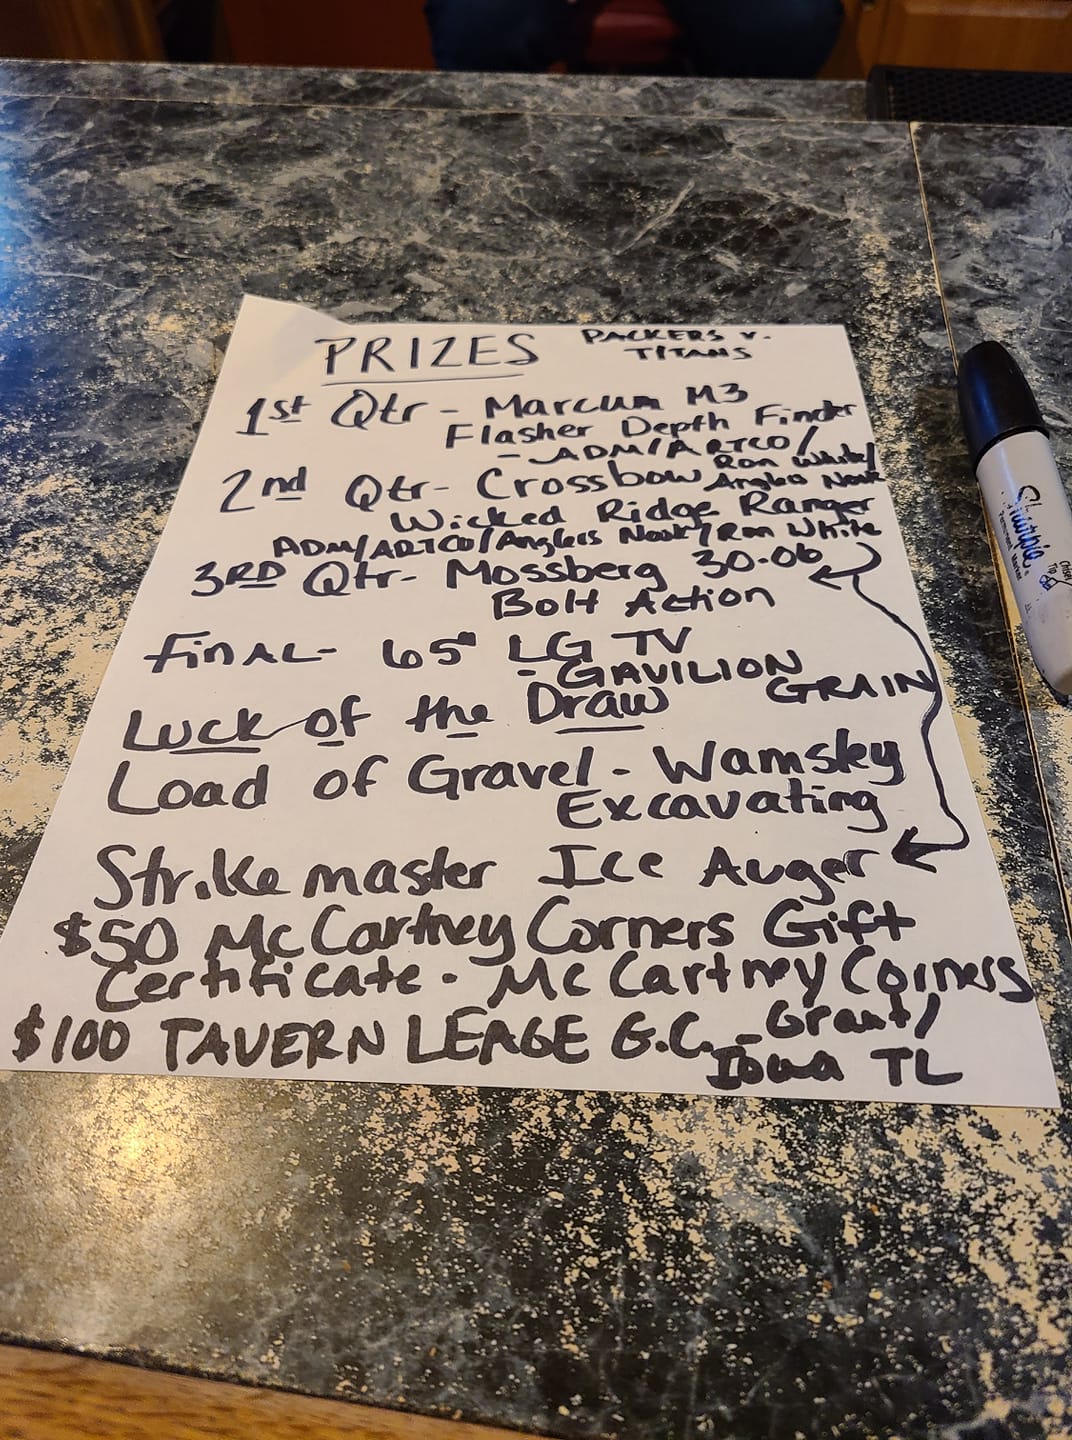 PRIZES PACKERS V.
TITANS
1st Qtr - Marcum M3
Flasher Depth Finder
- ADM/ARTCO/
Ron White/
Anglers Nook
2nd Qtr - Crossbow
Wicked Ridge Ranger
ADM/ARTCO/Anglers Nook/Ron White
3RD Qtr - Mossberg 30-06
Bolt Action
FINAL - 65" LG TV
- GAVILION
GRAIN
Luck of the Draw
Load of Gravel - Wamsley
Excavating
Strikemaster Ice Auger
$50 McCartney Corners Gift
Certificate - McCartney Corners
$100 TAVERN LEAGE G.C. - Grant/
Iowa TL
Sharpie